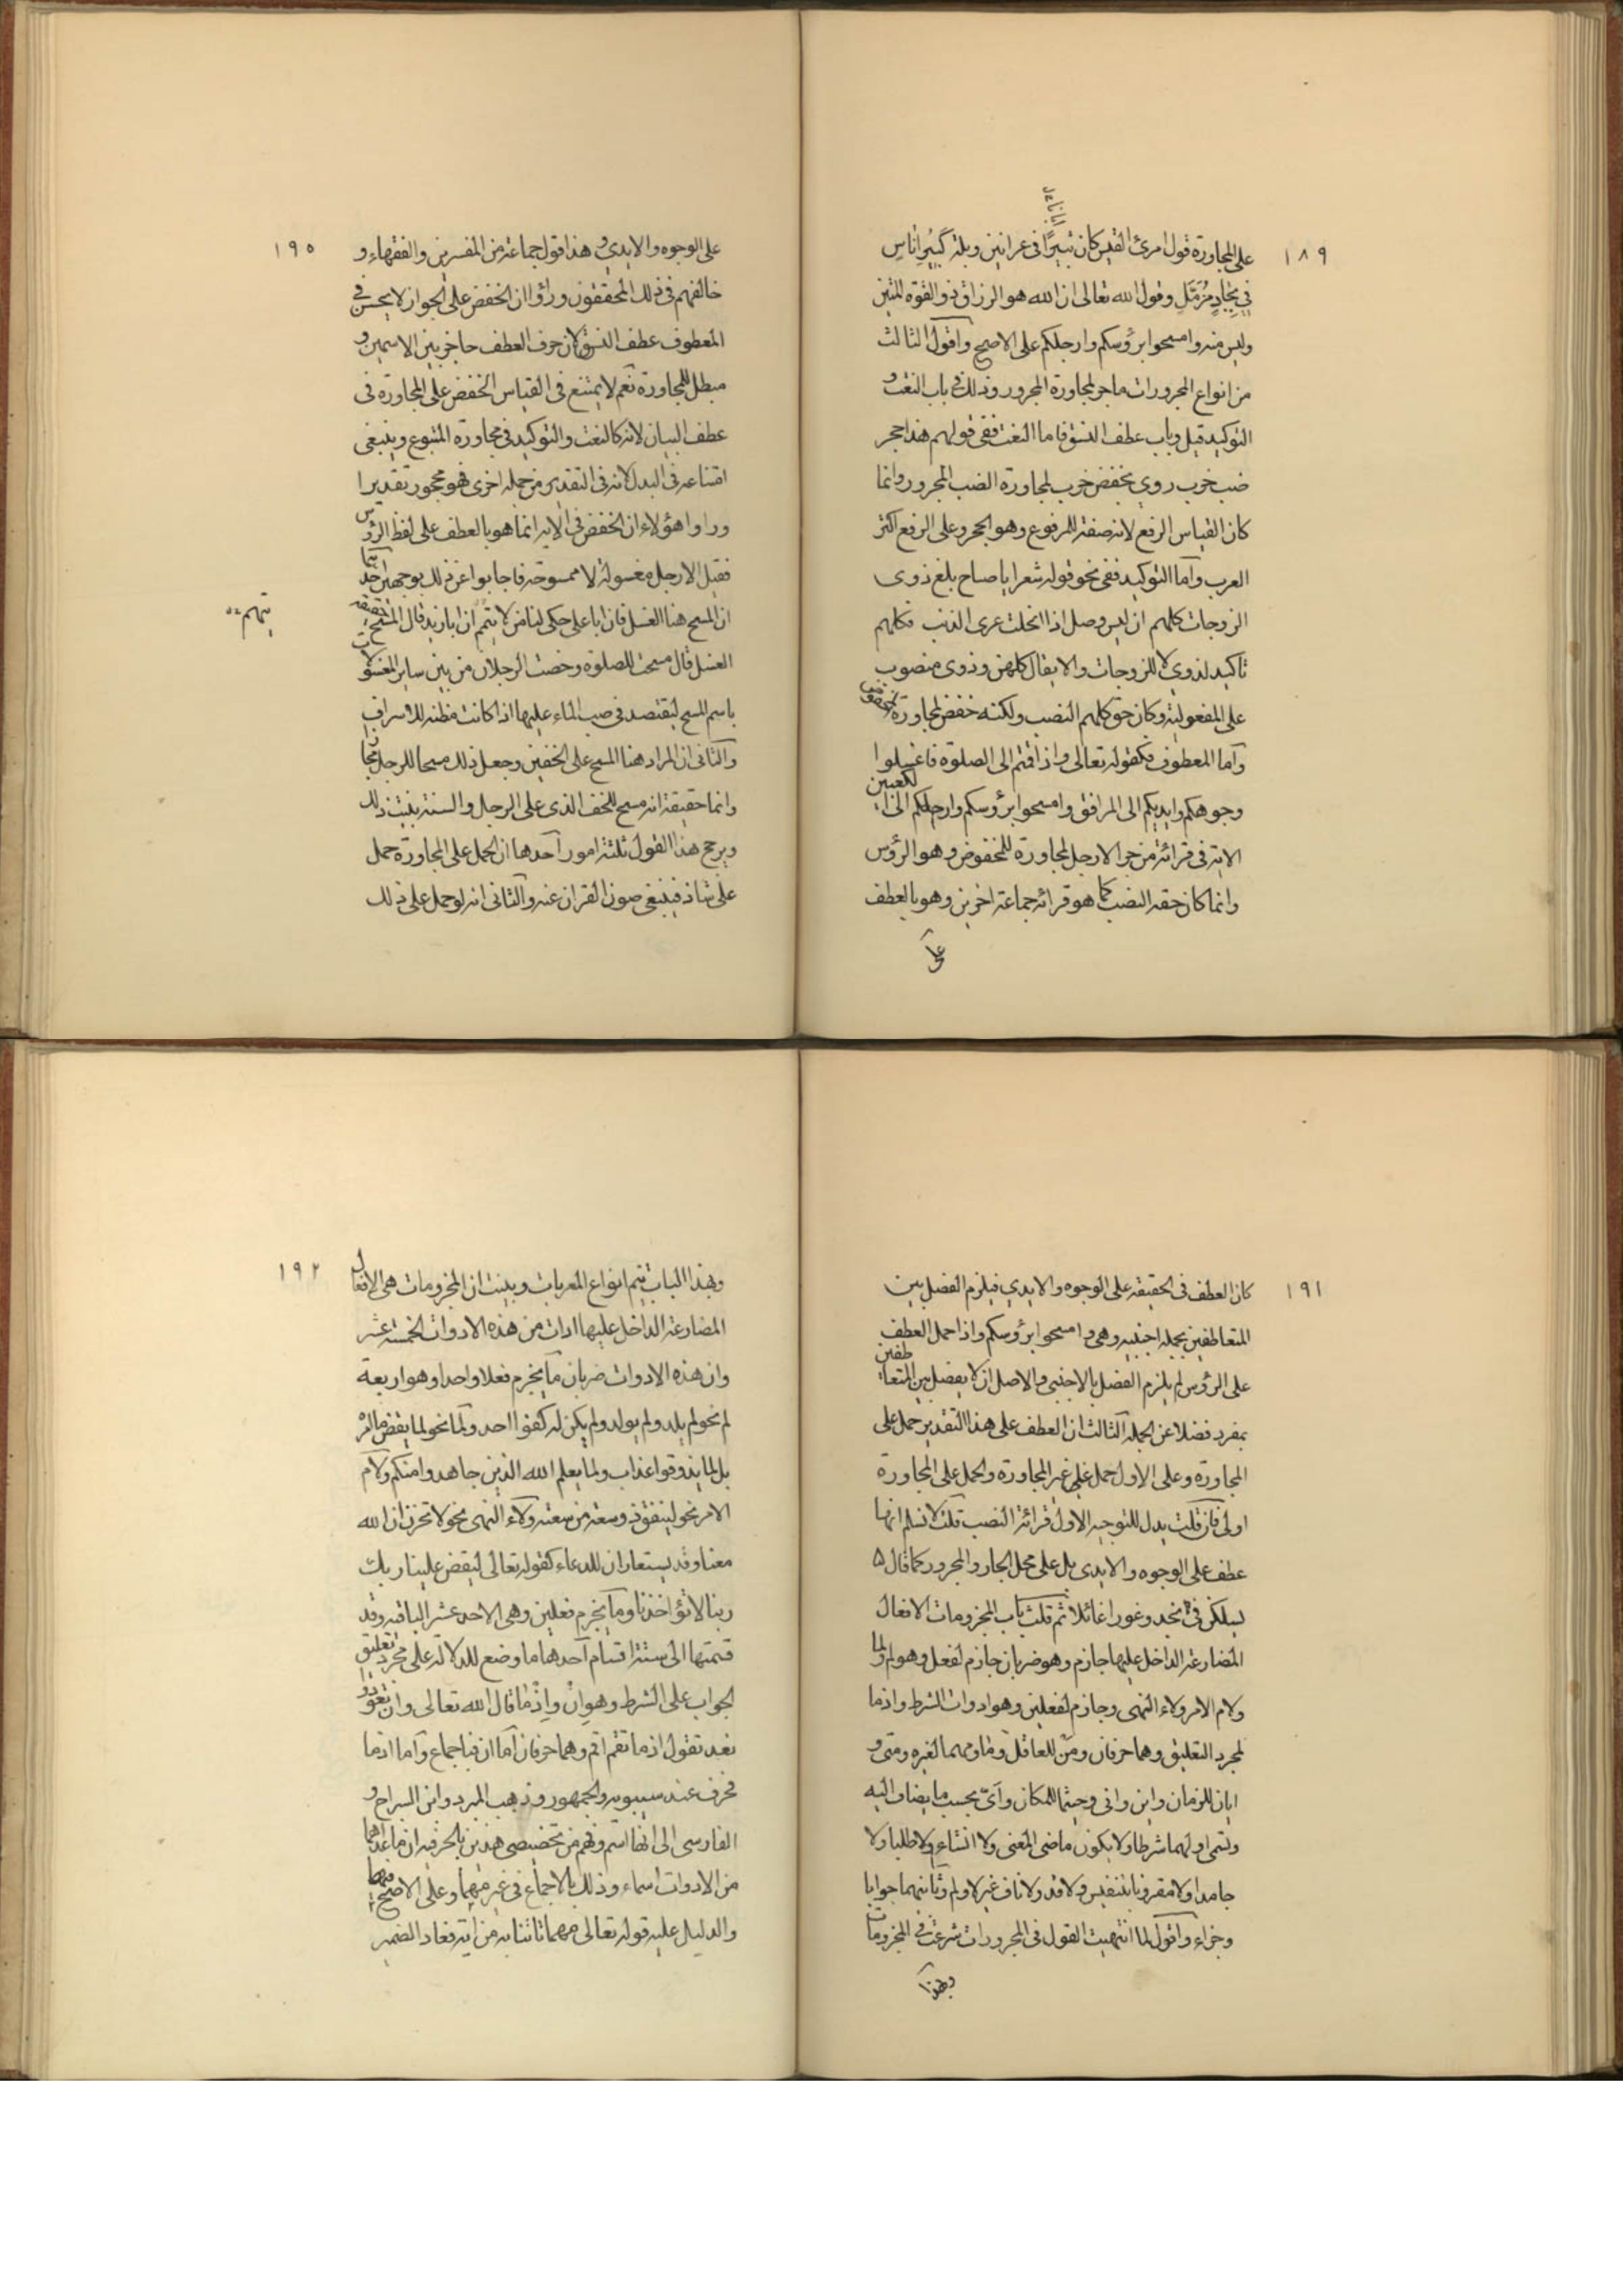 ١٨٩
على المجاورة قول امرئ القيس كان ثبيرًا فى عرانين وبله كَبِيُرِ اناسِ
فِي بِجَادٍ مُزَمَّلِ وقول الله تعالى ان الله هو الرزاق ذو القوة المتين
وليس منه وامسحوا برؤسكم وارجلكم على الاصح واقول الثالث
من انواع المجرورات ما جر لمجاورة المجرور وذلك فى باب النعت و
التوكيد قيل وباب عطف النسق فاما النعت ففى قولهم هذا حجر
ضب خرب روى بخفض خرب لمجاورة الضب المجرور وانما
كان القياس الرفع لانه صفة للمرفوع وهو الجحر وعلى الرفع اكثر
العرب وآما التوكيد ففى نحو قوله شعر ايا صاح بلغ ذوى
الزوجات كلهم ان ليس وصل اذا انحلت عرى الذنب فكلهم
تاكيد لذوى لا للزوجات والا يقال كلهن وذوى منصوب
على المفعولية وكان حق كلهم النصب ولكنه خفض لمجاورة المخفوض
وآما المعطوف فكقوله تعالى واذا قمتم الى الصلوة فاغسلوا
وجوهكم وايديكم الى المرافق وامسحوا برؤسكم وارجلكم الى الكعبين
الاية فى قرائة من جر الارجل لمجاورة للمخفوض وهو الرؤس
وانما كان حقه النصب كما هو قرائة جماعة اخرين وهو بالعطف
على
١٩٥
على الوجوه والايدي وهذا قول جماعة من المفسرين والفقهاء و
خالفهم فى ذلك المحققون وراوا ان الخفض على الجوار لا يحسن فى
المعطوف عطف النسق لان حرف العطف حاجز بين الاسمين و
مبطل للمجاورة نعم لا يمتنع فى القياس الخفض على المجاورة فى
عطف البيان لانه كالنعت والتوكيد فى مجاورة المتبوع وينبغى
امتناعه فى البدل لانه فى التقدير من جملة اخرى فهو محجور تقديرا
وراوا هؤلاء ان الخفض فى الاية انما هو بالعطف على لفظ الرؤس
فقيل الارجل مغسولة لا ممسوحة فاجابوا عن ذلك بوجهين احدهما
ان المسح هنا الغسل فان ابا على حكى لنا من لا يتهم ان ابا زيد قال المسح خفيف
يتهم
الغسل قال مسحت للصلوة وخصت الرجلان من بين ساير المغسولات
باسم المسح ليقتصد فى صب الماء عليهما اذ كانت مظنة للاسراف
والثانى ان المراد هنا المسح على الخفين وجعل ذلك مسحا للرجل مجازا
وانما حقيقة انه مسح للخف الذى على الرجل والسنة بينت ذلك
ويرجح هذا القول ثلثة امور آحدها ان الحمل على المجاورة حمل
على شاذ فينبغى صون القران عنه والثانى انه لو حمل على ذلك
١٩١
كان العطف فى الحقيقة على الوجوه والايدي فيلزم الفصل بين
المتعاطفين بجملة اجنبيه وهى وامسحوا برؤسكم واذا حمل العطف
على الرؤس لم يلزم الفصل بالاجنبى والاصل ان لا يفصل بين المتعاطفين
بمفرد فضلا عن الجملة الثالث ان العطف على هذا التقدير حمل على
المجاورة وعلى الاول حمل على غير المجاورة والحمل على المجاورة
اولى فان قلت يدل للتوجيه الاول قرائة النصب قلت لا نسلم انها
عطف على الوجوه والايدى بل على محل الجار والمجرور كما قال
يسلكن فى نجد وغورا غائلا ثم قلت باب المجزومات الافعال
المضارعة الداخل عليها جازم وهو ضربان جازم لفعل وهو لم ولما
ولام الامر ولاء النهى وجازم لفعلين وهو ادوات الشرط واذما
لمجرد التعليق وهما حرفان ومن للعاقل وما ومهما لغيره ومتى و
ايان للزمان واين وانى وحيثما للمكان وآىّ بحسب ما يضاف اليه
وتسمى اولهما شرطا ولا يكون ماضى المعنى ولا انشاء ولا طلبا ولا
جامدا ولا مقرونا بتنفيس ولا قد ولا ناف غير لا ولم وثانيهما جوابا
وجزاء واقول لما انتهيت القول فى المجرورات شرعت فى المجزومات
وبهذا
١٩٢
وبهذا الباب يتم انواع المعربات وبينت ان المجزومات هى الافعال
المضارعة الداخل عليها ادات من هذه الادوات الخمسة عشر
وان هذه الادوات ضربان ما يجزم فعلا واحدا وهو اربعة
لم نحو لم يلد ولم يولد ولم يكن له كفوا احد ولما نحو لما يقض ما امره
بل لما يذوقوا عذاب ولما يعلم الله الذين جاهدوا منكم ولام
الامر نحو لينفق ذو سعة من سعته ولاء النهى نحو لا تحزن ان الله
معنا وقد يستعاران للدعاء كقوله تعالى ليقض علينا ربك
ربنا لا تؤاخذنا وما يجزم فعلين وهى الاحد عشر الباقية وقد
قسمتها الى ستة اقسام آحدها ما وضع للدلالة على مجرد تعليق
الجواب على الشرط وهو انْ واِذْما قال الله تعالى وان تعودوا
نعد تقول اذما تقم اقم وهما حرفان آما ان فباجماع وآما اذما
فحرف عند سيبويه والجمهور وذهب المبرد وابن السراج و
الفارسى الى انها اسم وفهم من تخصيصى هذين بالحرفية ان ما عداهما
من الادوات اسماء وذلك بالاجماع فى غير مهما وعلى الاصح فيها
والدليل عليه قوله تعالى مهما تاتنا به من اية فعاد الضمير